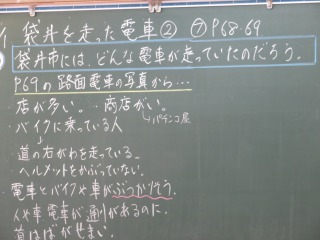 袋井を走った電車② ⑦P68·69
袋井市には、どんな電車が走っていたのだろう。
P69の路面電車の写真から…
店が多い。 商店がい。
↳パチンコ屋
・バイクに乗っている人
↓
・道の右がわを走っている。
・ヘルメットをかぶっていない。
電車とバイクや車がぶつかりそう。
人や車、電車が通りがあるのに、
道はばがせまい。